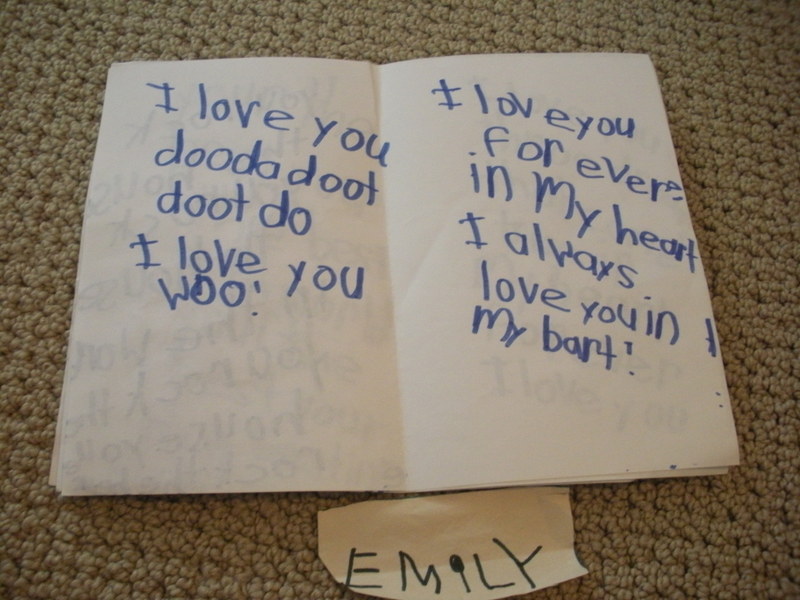 I love you
dooda doot
doot do
I love you
woo!
I love you
for ever
in my heart
I always
love you in
my bart!
EMiLY